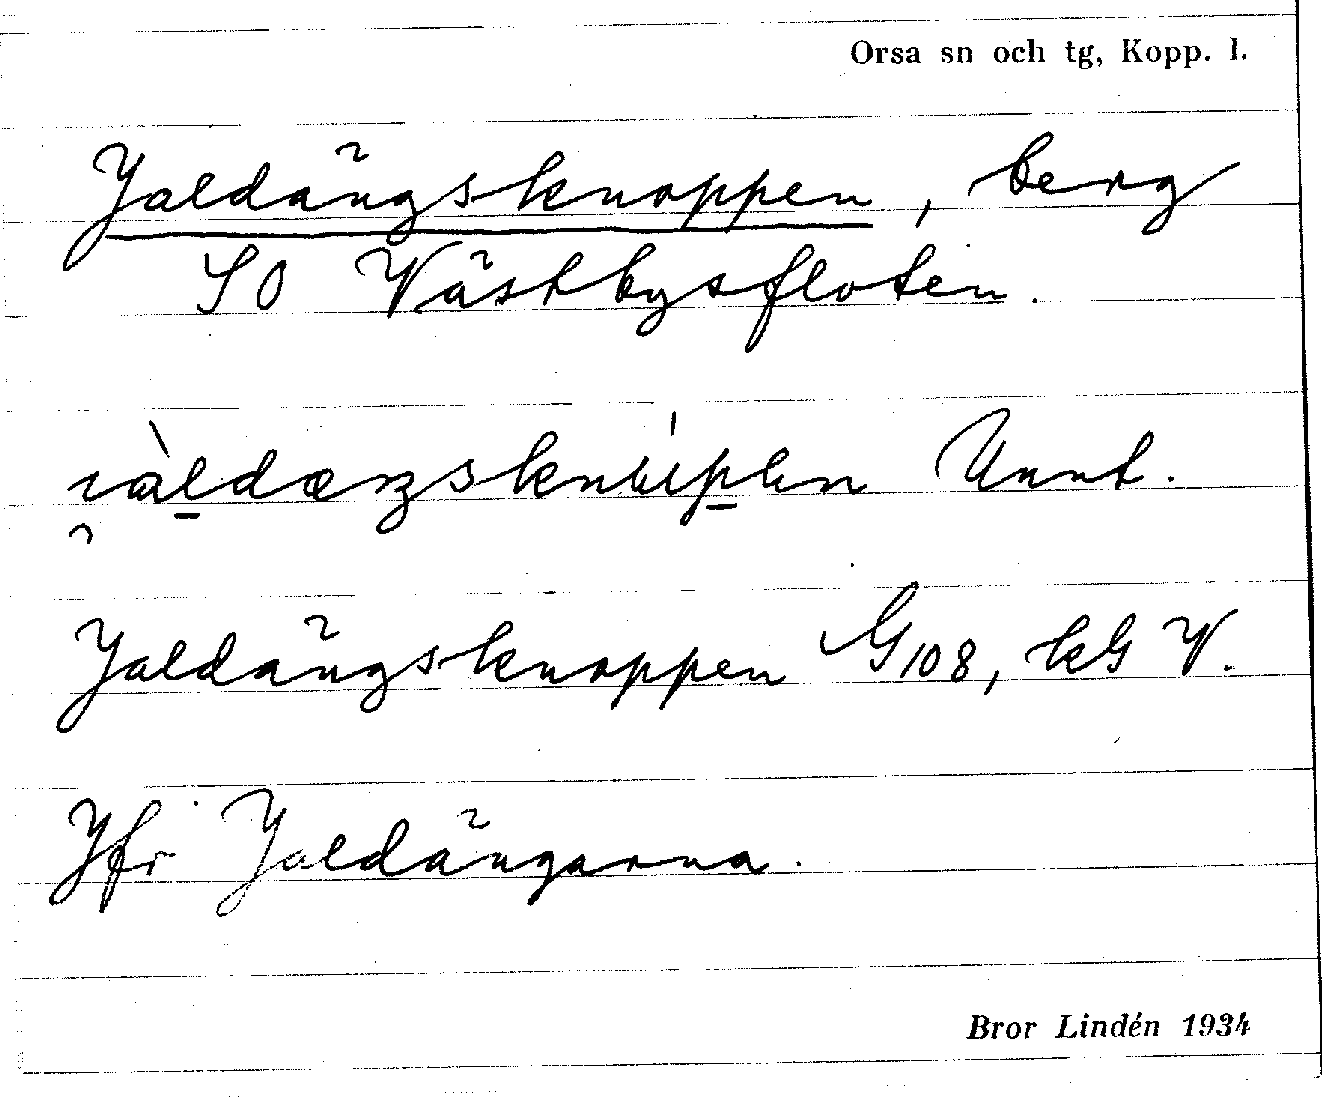 Orsa sn och tg, Kopp. l.
Jaldängsknoppen, berg
SO Västbysfloten.
Unnt.
Jaldängsknoppen G108, kG V.
Jfr Jaldängarna.
Bror Lindén 1934